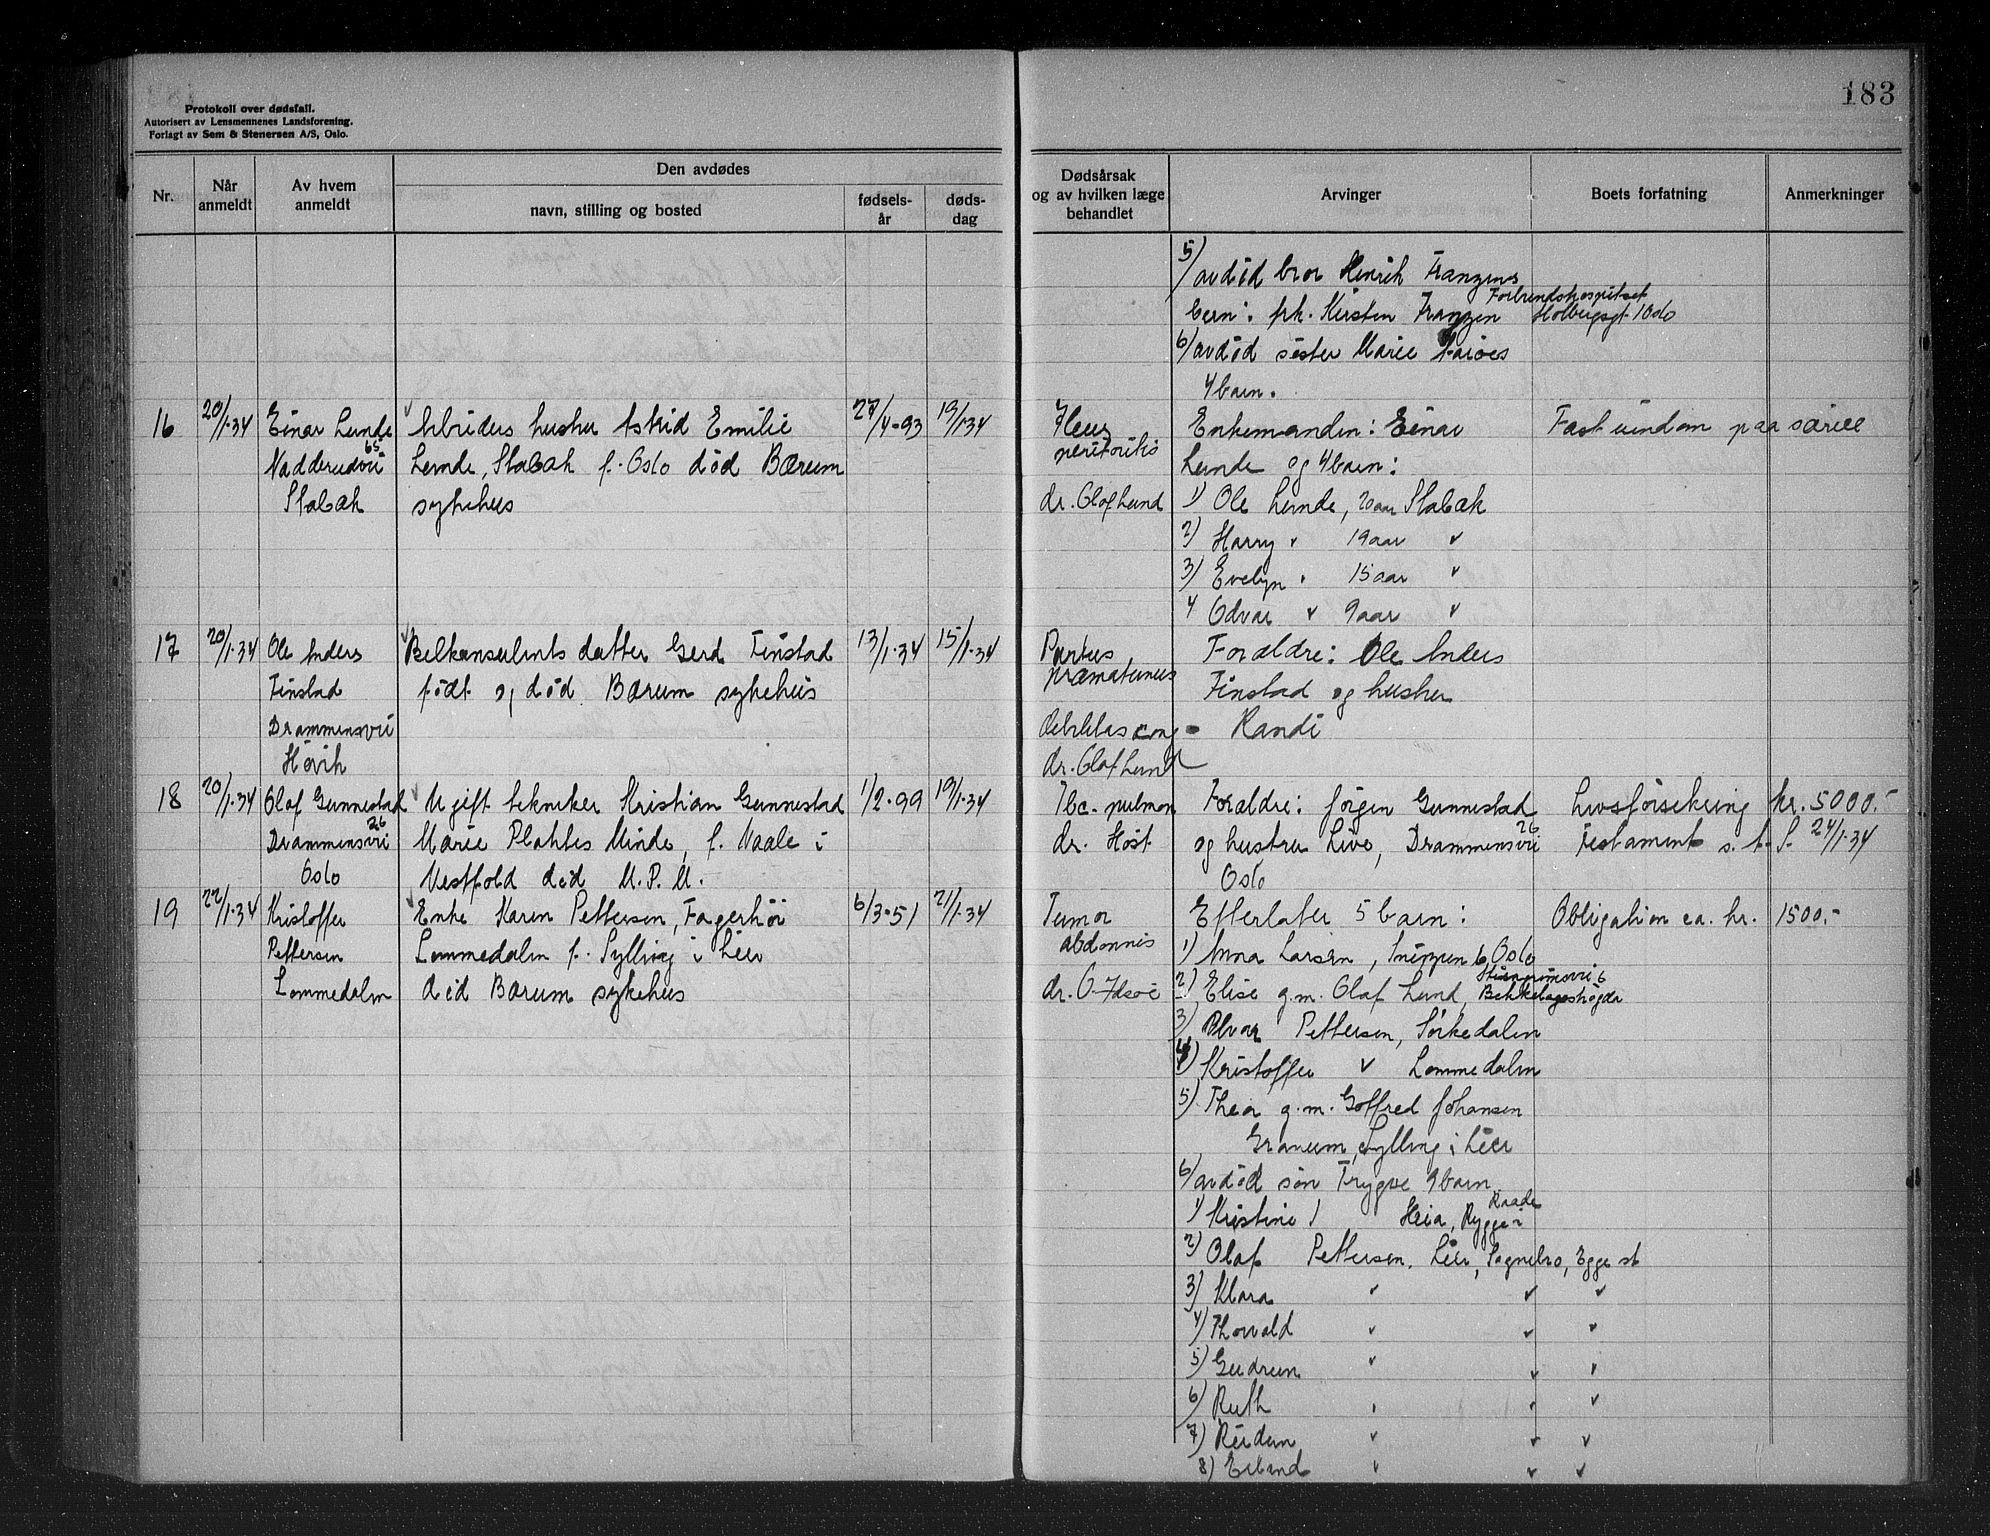 Protokoll over dødsfall.
Autorisert av Lensmennenes Landsforening.
Forlagt av Sem & Stenersen A/S, Oslo.
183
Nr.
Når anmeldt
Av hvem anmeldt
Den avdødes
navn, stilling og bosted
fødsels-
år
døds-
dag
Dødsårsak
og av hvilken læge
behandlet
Arvinger
Boets forfatning
Anmerkninger
5/
avdöd bror Henrik Franzens
barn: frk. Kirsten Franzen Forbundshospitset Holbergsgt. 1 Oslo
6/ avdöd söster Marie
4 barn.
16 20/1-34 Einar Lunde Arbeiders hustru Astrid Emilie 27/4-93 19/1 34 Ileus Enkemanden: Einar Fast eiendom paa særeie
Nadderudvei 65 Lunde, Stabæk f. Oslo död Bærum peritonitis Lunde og 4 barn:
Stabæk sykehus dr. Olaf Lund 1) Ole Lunde, 20 aar Stabæk
2) Harry " 19 aar "
3) Evelyn " 15 aar "
4 Odvar " 9 aar "
17 20/1-34 Ole Anders datter Gerd Finstad 13/1-34 15/1-34 Partus Forældre: Ole Anders
Finstad födt og död Bærum sykehus præmaturus Finstad og hustru
Drammensvei Debilitas cong- Randi
Hövik dr. Olaf Lund
18 20/1-34 Olaf Gunnestad Ugift tekniker Kristian Gunnestad 1/2-99 19/1-34 Tbc. pulmon Forældre: Jörgen Gunnestad Livsforsikring kr. 5000.-
Drammensvei 26 Marie Plahtes Minde, f. Vaale i dr. Höst og hustru Live, Drammensvei 26 Testament s. t. S. 24/1-34
Oslo Vestfold död M.P.M. Oslo
19 22/1-34 Kristoffer Enke Karen Pettersen, Fagerhöi 6/3-51 21/1-34 Tumor Efterlater 5 barn: Obligation ca. kr. 1500.-
Pettersen Lommedalen f. Sylling i Lier abdomnis 1) Anna Larsen, 6 Oslo
Lommedalen död Bærum sykehus dr. O. Idsöe 2) Elise g.m. Olaf Lund, 6 Bekkelagshögda
3) Alvar Pettersen, Sörkedalen
4) Kristoffer " Lommedalen
5) Thea g.m. Goffred Johansen
Granum, Sylling i Lier
6/ avdöd sön Trygve 9 barn
1) Kristine / Heia, Rygge Raade
2) Olaf Pettersen. Lier, Sognebro, Egge st
3) Klara " " "
4) Thorvald " " "
5) Gudrun " " "
6) Ruth " " "
7) Reidun " " "
8) Erland " " "